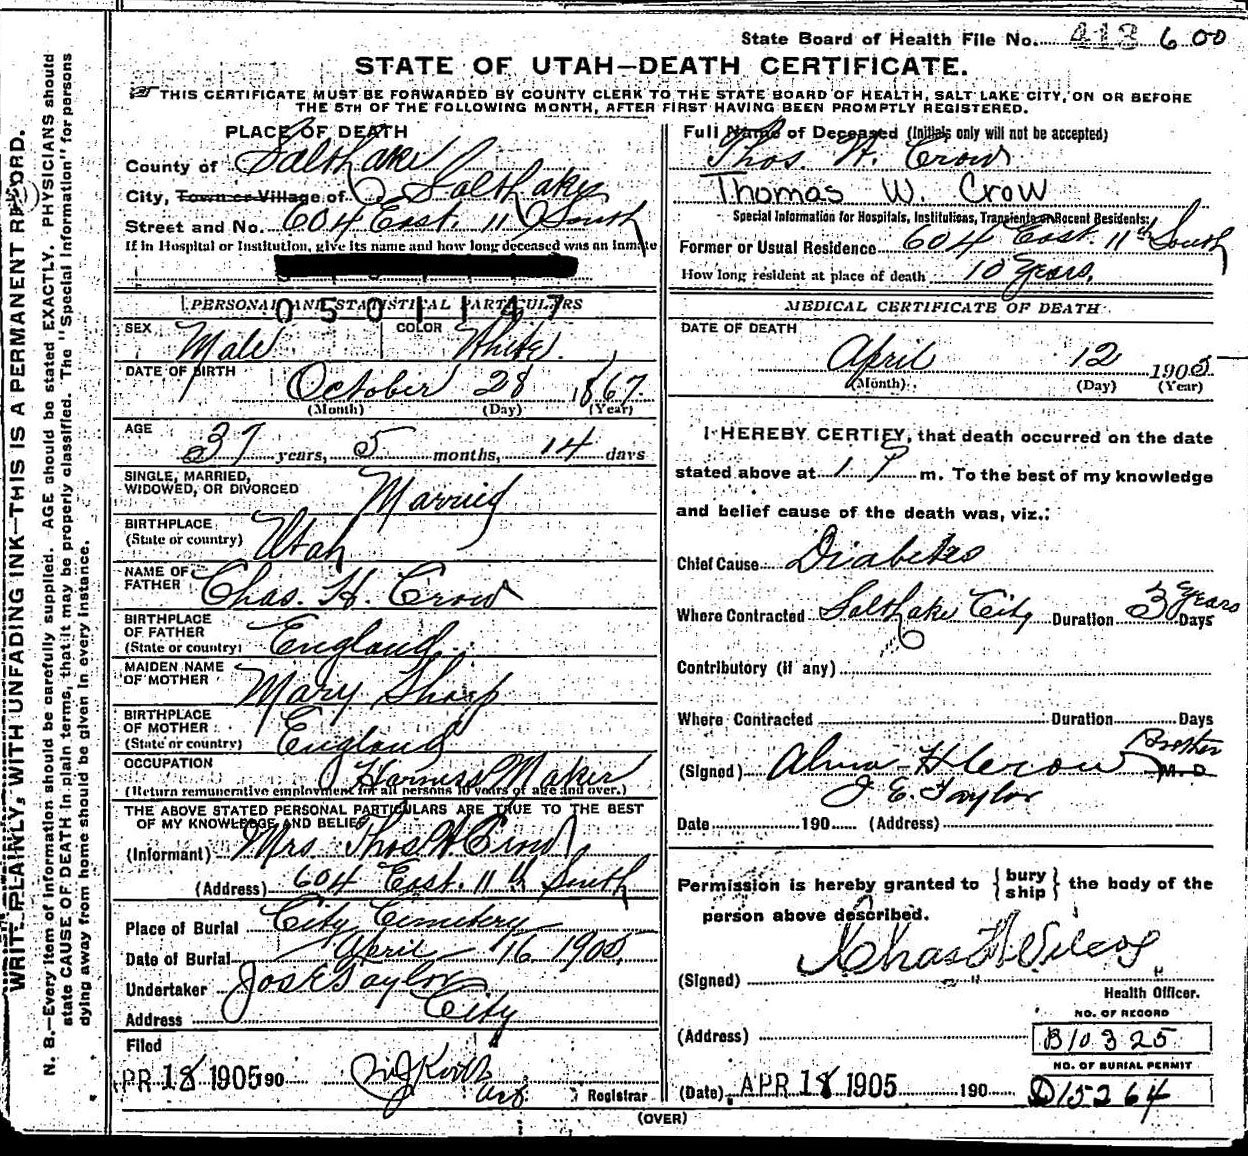 State Board of Health File No. 413 6 00
STATE OF UTAH—DEATH CERTIFICATE.
THIS CERTIFICATE MUST BE FORWARDED BY COUNTY CLERK TO THE STATE BOARD OF HEALTH, SALT LAKE CITY, ON OR BEFORE
THE 5TH OF THE FOLLOWING MONTH, AFTER FIRST HAVING BEEN PROMPTLY REGISTERED.
WRITE PLAINLY, WITH UNFADING INK—THIS IS A PERMANENT RECORD.
N. B.—Every item of information should be carefully supplied. AGE should be stated EXACTLY. PHYSICIANS should
state CAUSE OF DEATH in plain terms, that it may be properly classified. The "Special Information" for persons
dying away from home should be given in every instance.
PLACE OF DEATH
County of Salt Lake
City, Town or Village of Salt Lake
Street and No. 604 East. 11 South
If in Hospital or Institution, give its name and how long deceased was an inmate
PERSONAL AND STATISTICAL PARTICULARS
0501147
SEX Male COLOR White.
DATE OF BIRTH October 28 1867.
(Month) (Day) (Year)
AGE 37 years, 5 months, 14 days
SINGLE, MARRIED,
WIDOWED, OR DIVORCED Married
BIRTHPLACE
(State or country) Utah
NAME OF
FATHER Chas. H. Crow
BIRTHPLACE
OF FATHER
(State or country) England.
MAIDEN NAME
OF MOTHER Mary Sharp
BIRTHPLACE
OF MOTHER
(State or country) England
OCCUPATION Harness Maker
(Return remunerative employment for all persons 10 years of age and over.)
THE ABOVE STATED PERSONAL PARTICULARS ARE TRUE TO THE BEST
OF MY KNOWLEDGE AND BELIEF
(Informant) Mrs. Thos W. Crow
(Address) 604 East. 11th South
Place of Burial City Cemetery
Date of Burial April 16 1905.
Undertaker Jos E Taylor
Address City
Filed
APR 18 1905 190
Registrar
Full Name of Deceased (Initials only will not be accepted)
Thos. W. Crow
Thomas W. Crow
Special Information for Hospitals, Institutions, Transients or Recent Residents:
Former or Usual Residence 604 East. 11th South
How long resident at place of death 10 Years.
MEDICAL CERTIFICATE OF DEATH
DATE OF DEATH
April 12 1905
(Month) (Day) (Year)
I HEREBY CERTIFY, that death occurred on the date
stated above at 1 P m. To the best of my knowledge
and belief cause of the death was, viz.:
Chief Cause Diabetes
Where Contracted Salt Lake City Duration 3 Years Days
Contributory (if any)
Where Contracted Duration Days
(Signed) Alma H Crow Brother M. D.
J. E. Taylor
Date 190 (Address)
Permission is hereby granted to { bury ship } the body of the
person above described.
(Signed) Chas H Wilcox
Health Officer.
(Address)
NO. OF RECORD
B10325
NO. OF BURIAL PERMIT
(Date) APR 18 1905 190 D15264
(OVER)